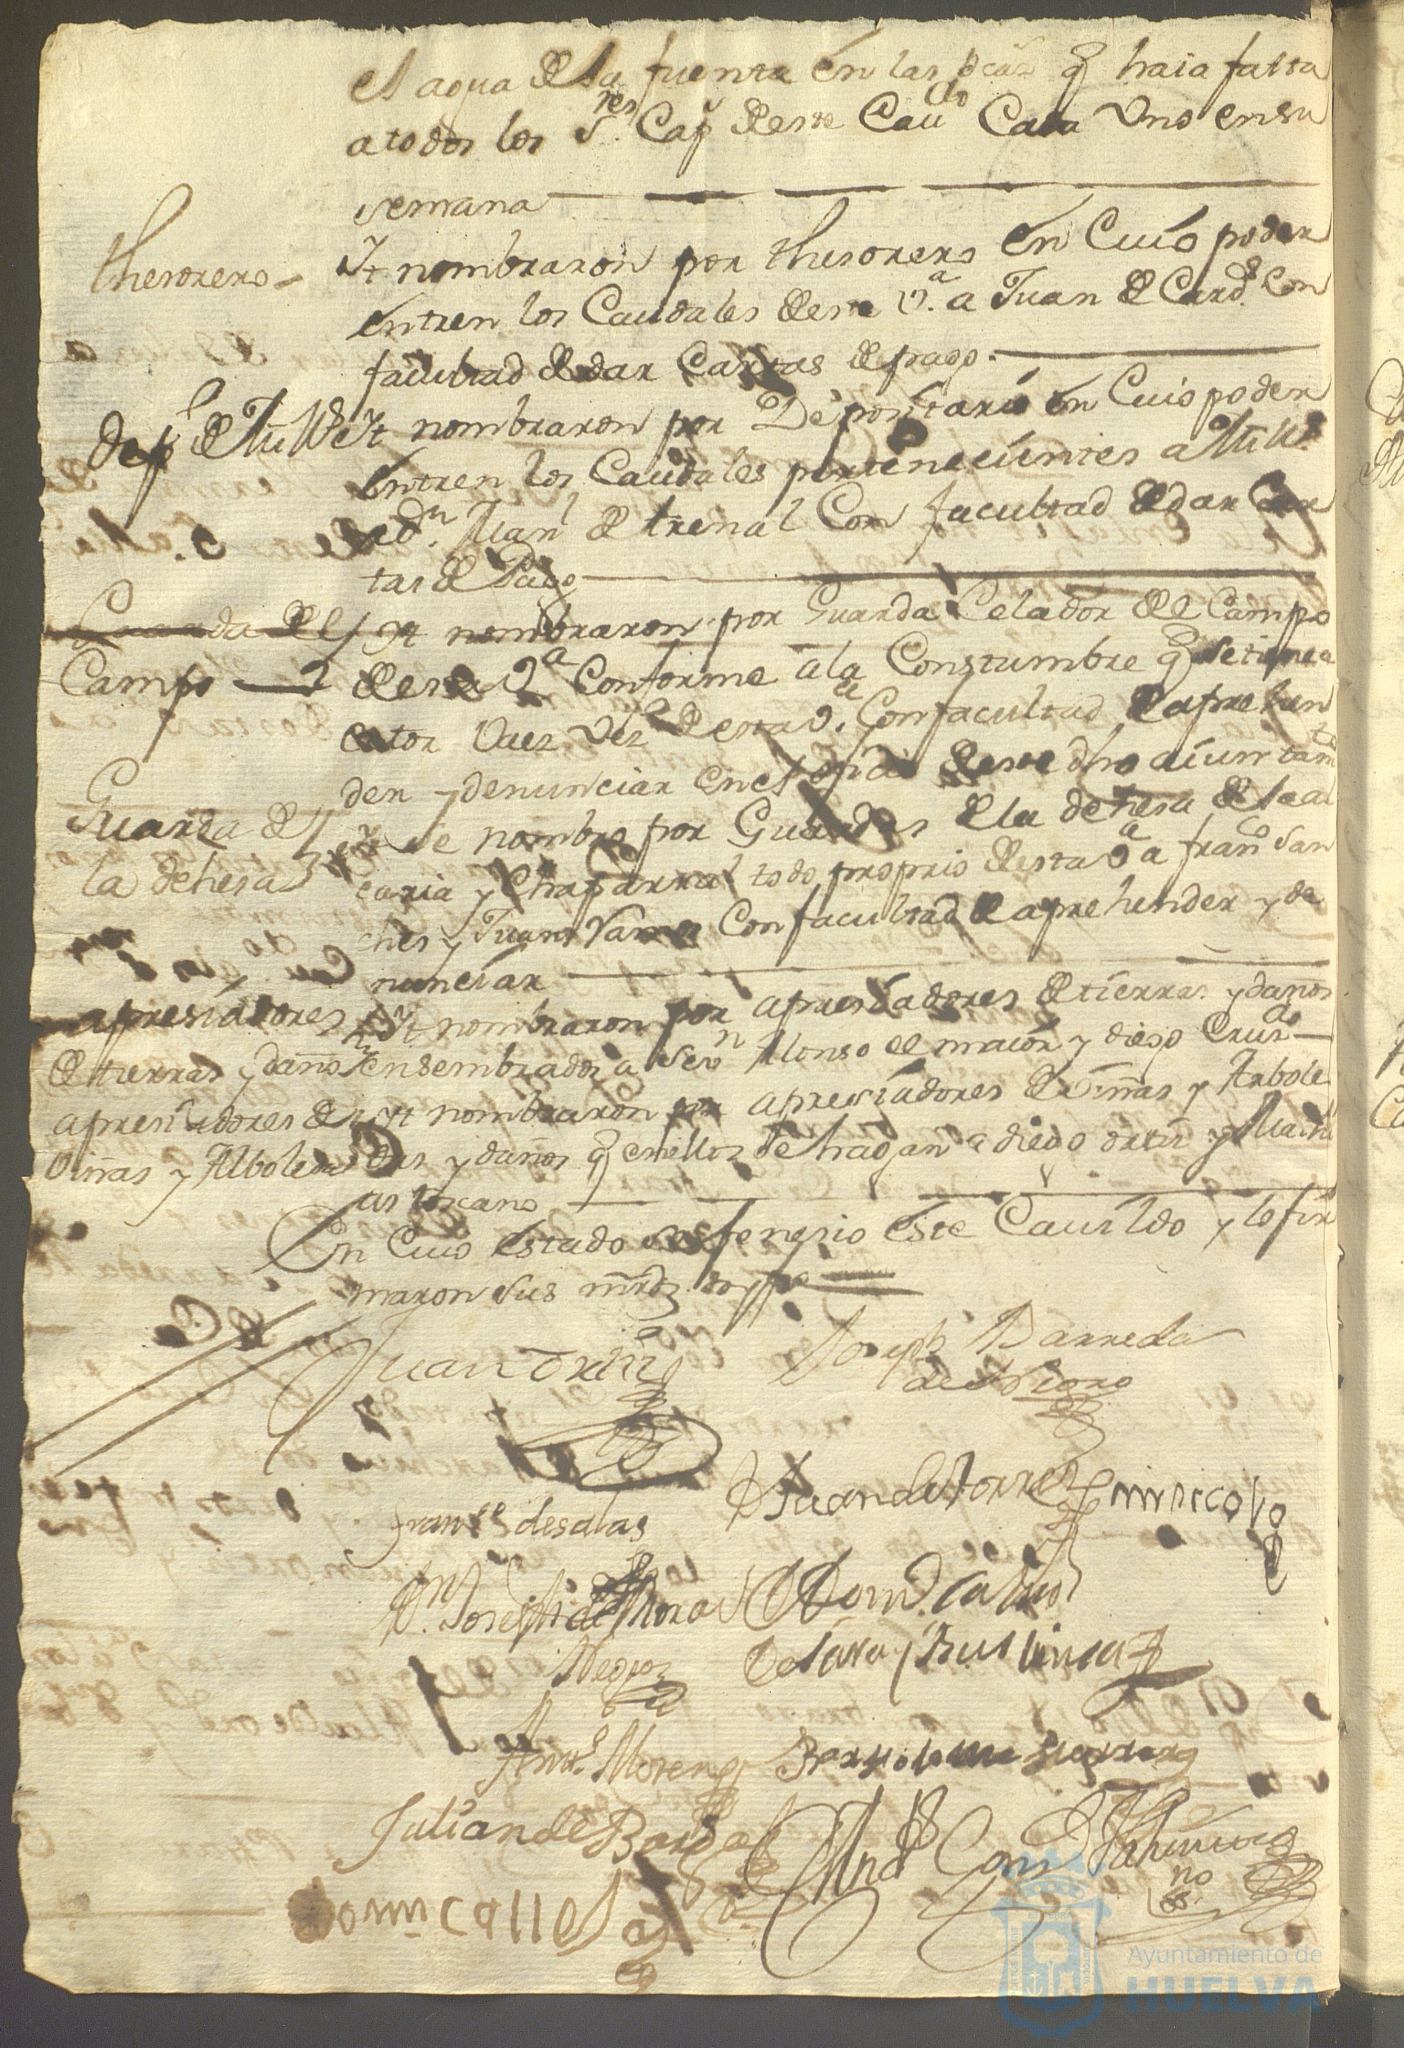 el agua de la fuente en las q haia falta
a todos los S.res Cap deste Caudo Cada Uno en su
semana
thesorero
Yt nombraron por thesorero en Cuio poder
entren los Caudales deste V.a a Juan de Card.s Con
facultad de dar Cartas de pago.
Dep.o de
Yt nombraron por Depositario en Cuio poder
entren los Caudales pertenecientes a
a d.n Juan de trenal Con facultad de dar Car
tas de Pago
Guarda del
Campo
Yt nombraron por Guarda Celador del Campo
desta V.a Conforme a la Constumbre q se tiene a
Vaez Vez.o desta V.a Con facultad de aprehen
der y denunciar en el deste dho aiuntam.to
Guarda de
la dehesa
Yt se nombro por Guardas de la dehesa de la al
caria y Chaparral todo proprio desta V.a a fran.co San
ches y Juan Con facultad de aprehender y de
nunciar
apresiadores
de tierras y daños
Yt nombraron por apresiadores de tierras y daños
en sembrados a Seu.n Alonso el maior y diego Cruz
apresiadores de
Viñas y Alboledas
Yt nombraron por apresiadores de Viñas y Arbole
das y daños q en ellos se hagan a diego ortiz y Mathi
as toscano
En Cuio estado se fenesio este Cauildo y lo fir
maron sus mrdz doy fe
Juan ortiz
Joseph Barreda
de
fran.co de salas
D Juan de Torres
D.n Joseph de Mora
Negro
Ant.o Moreno
Bartholome Guerrero
Julian de Borda
Ayuntamiento de
HUELVA